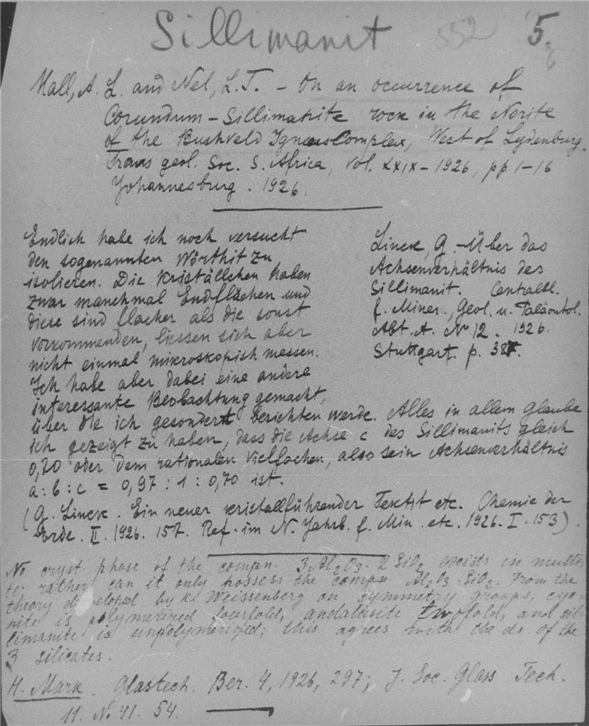 Sillimanit 552 5.
6
Hall, A. L. and Nel, L. T. – On an occurrence of
Corundum-Sillimanite rock in the Norite
of the Bushveld Igneous Complex, West of Lydenburg.
Trans geol. Soc. S. Africa, Vol. XXIX – 1926, pp 1–16
Johannesburg. 1926.
Endlich habe ich noch versucht
den sogenannten Wörthit zu
isolieren. Die Kriställchen haben
zwar manchmal Endflächen und
diese sind flacher als die sonst
vorkommenden, liessen sich aber
nicht einmal mikroskopisch messen.
Ich habe aber dabei eine andere
interessante Beobachtung gemacht,
Linck, G. – Über das
Achsenverhältnis des
Sillimanit. Centralbl.
f. Miner., Geol. u. Paläontol.
Abt. A. No 12. 1926.
Stuttgart. p.
über die ich gesondert berichten werde. Alles in allem glaube
ich gezeigt zu haben, dass die Achse c des Sillimanits gleich
0,70 oder dem rationalen Vielfachen, also sein Achsenverhältnis
a : b : c = 0,97 : 1 : 0,70 ist.
(G. Linck. Ein neuer kristallführender Tektit etc. Chemie der
Erde. II. 1926. 157. Ref. im N. Jahrb. f. Min. etc. 1926. I. 153).
No cryst phase of the compn. 3Al2O3·2SiO2 exists in mulli-
te; rather can it only possess the compn Al2O3·SiO2. From the
theory developed by K. Weissenberg on symmetry groups, cya-
nite is polymerized fourfold, andalusite twofold, and sil-
limanite is unpolymerized; this agrees with the ds. of the
3 silicates.
H. Mark. Glastech. Ber. 4, 1926, 297; J. Soc. Glass Tech.
11. No 41. 54.